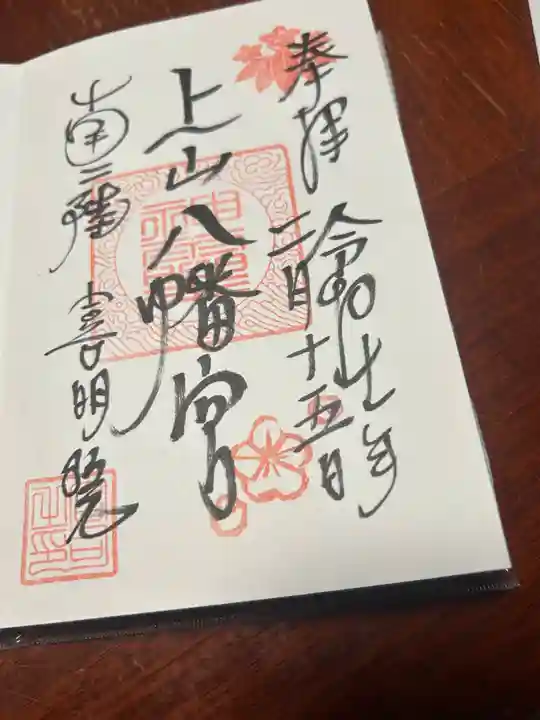 奉拝
令和七年
二月十五日
上山八幡宮
南三陸 喜明暁